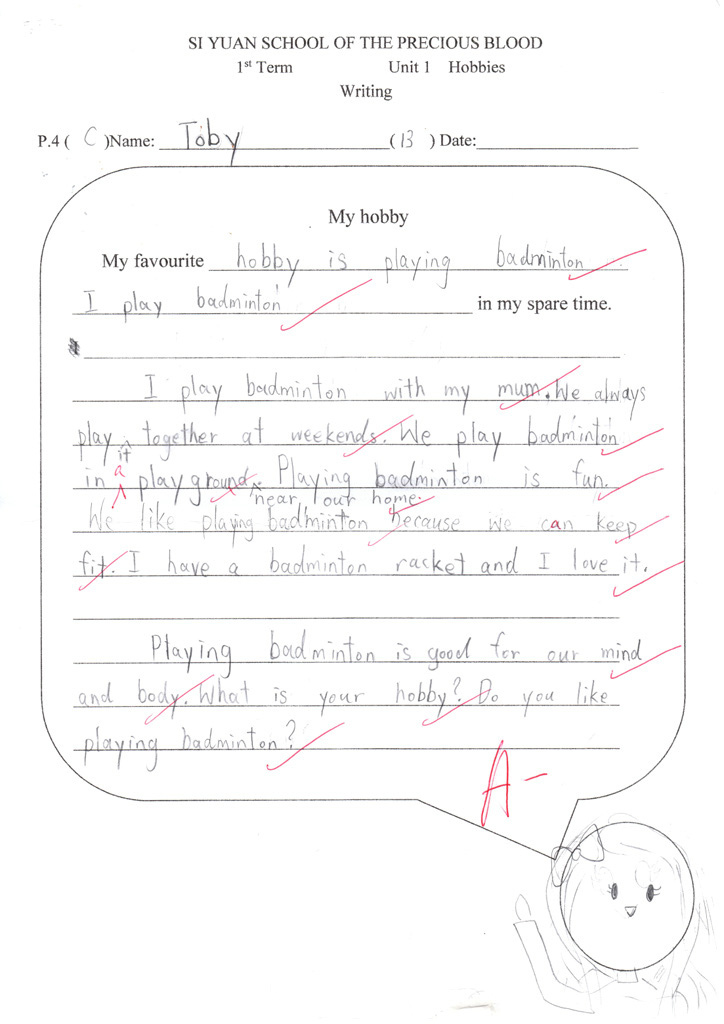 SI YUAN SCHOOL OF THE PRECIOUS BLOOD
1st Term Unit 1 Hobbies
Writing
P.4 ( C )Name: Toby ( 13 ) Date:
My hobby
My favourite hobby is playing badminton
I play badminton in my spare time.
I play badminton with my mum. We always
play it together at weekends. We play badminton
in a playground near our home. Playing badminton is fun.
We like playing badminton because we can keep
fit. I have a badminton racket and I love it.
Playing badminton is good for our mind
and body. What is your hobby? Do you like
playing badminton?
A-